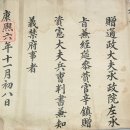 贈通政大夫承政院左承
旨無經筵參贊官辛鎮贈
資憲大夫兵曹判書無知
義禁府事者
康熙六年十一月初八日